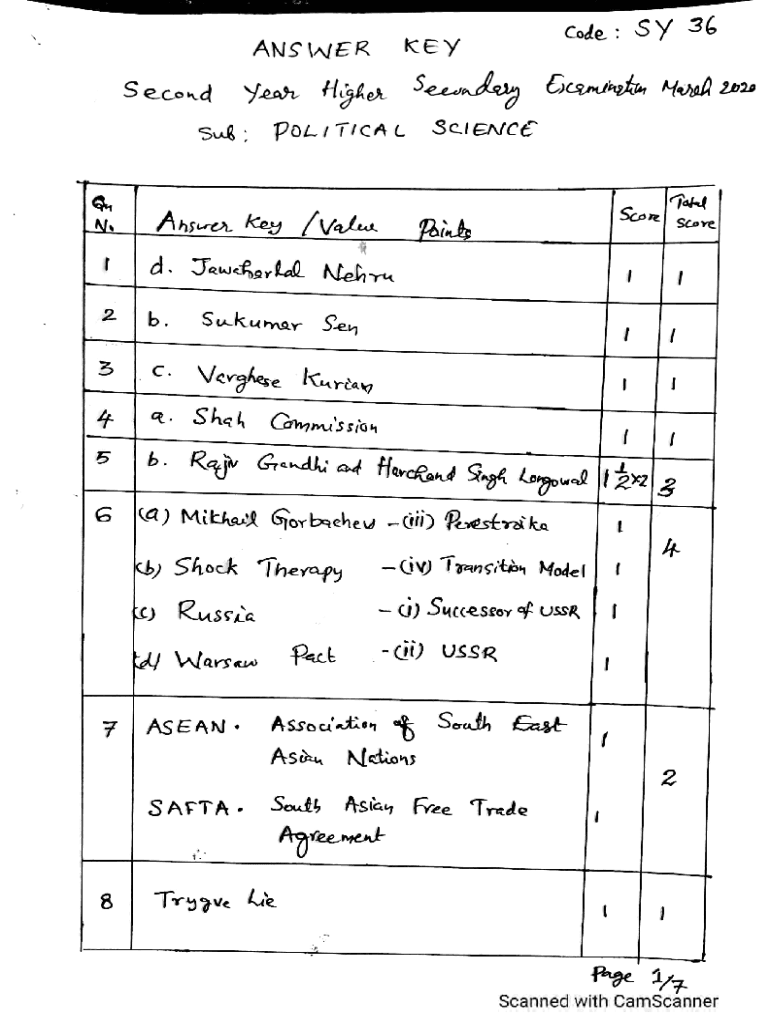 Code : SY 36
ANSWER KEY
Second Year Higher Secondary Examination March 2020
Sub : POLITICAL SCIENCE
Qn No. Answer Key / Value Points Score Total Score
1 d. Jawaharlal Nehru 1 1
2 b. Sukumar Sen 1 1
3 c. Varghese Kurian 1 1
4 a. Shah Commission 1 1
5 b. Rajiv Gandhi and Harchand Singh Longowal 1 1/2 x2 3
6 (a) Mikhail Gorbachev - (iii) Perestroika 1 4
(b) Shock Therapy - (iv) Transition Model 1
(c) Russia - (i) Successor of USSR 1
(d) Warsaw Pact - (ii) USSR 1
7 ASEAN. Association of South East 1
Asian Nations
2
SAFTA. South Asian Free Trade 1
Agreement
8 Trygve Lie 1 1
Page 1/7
Scanned with CamScanner